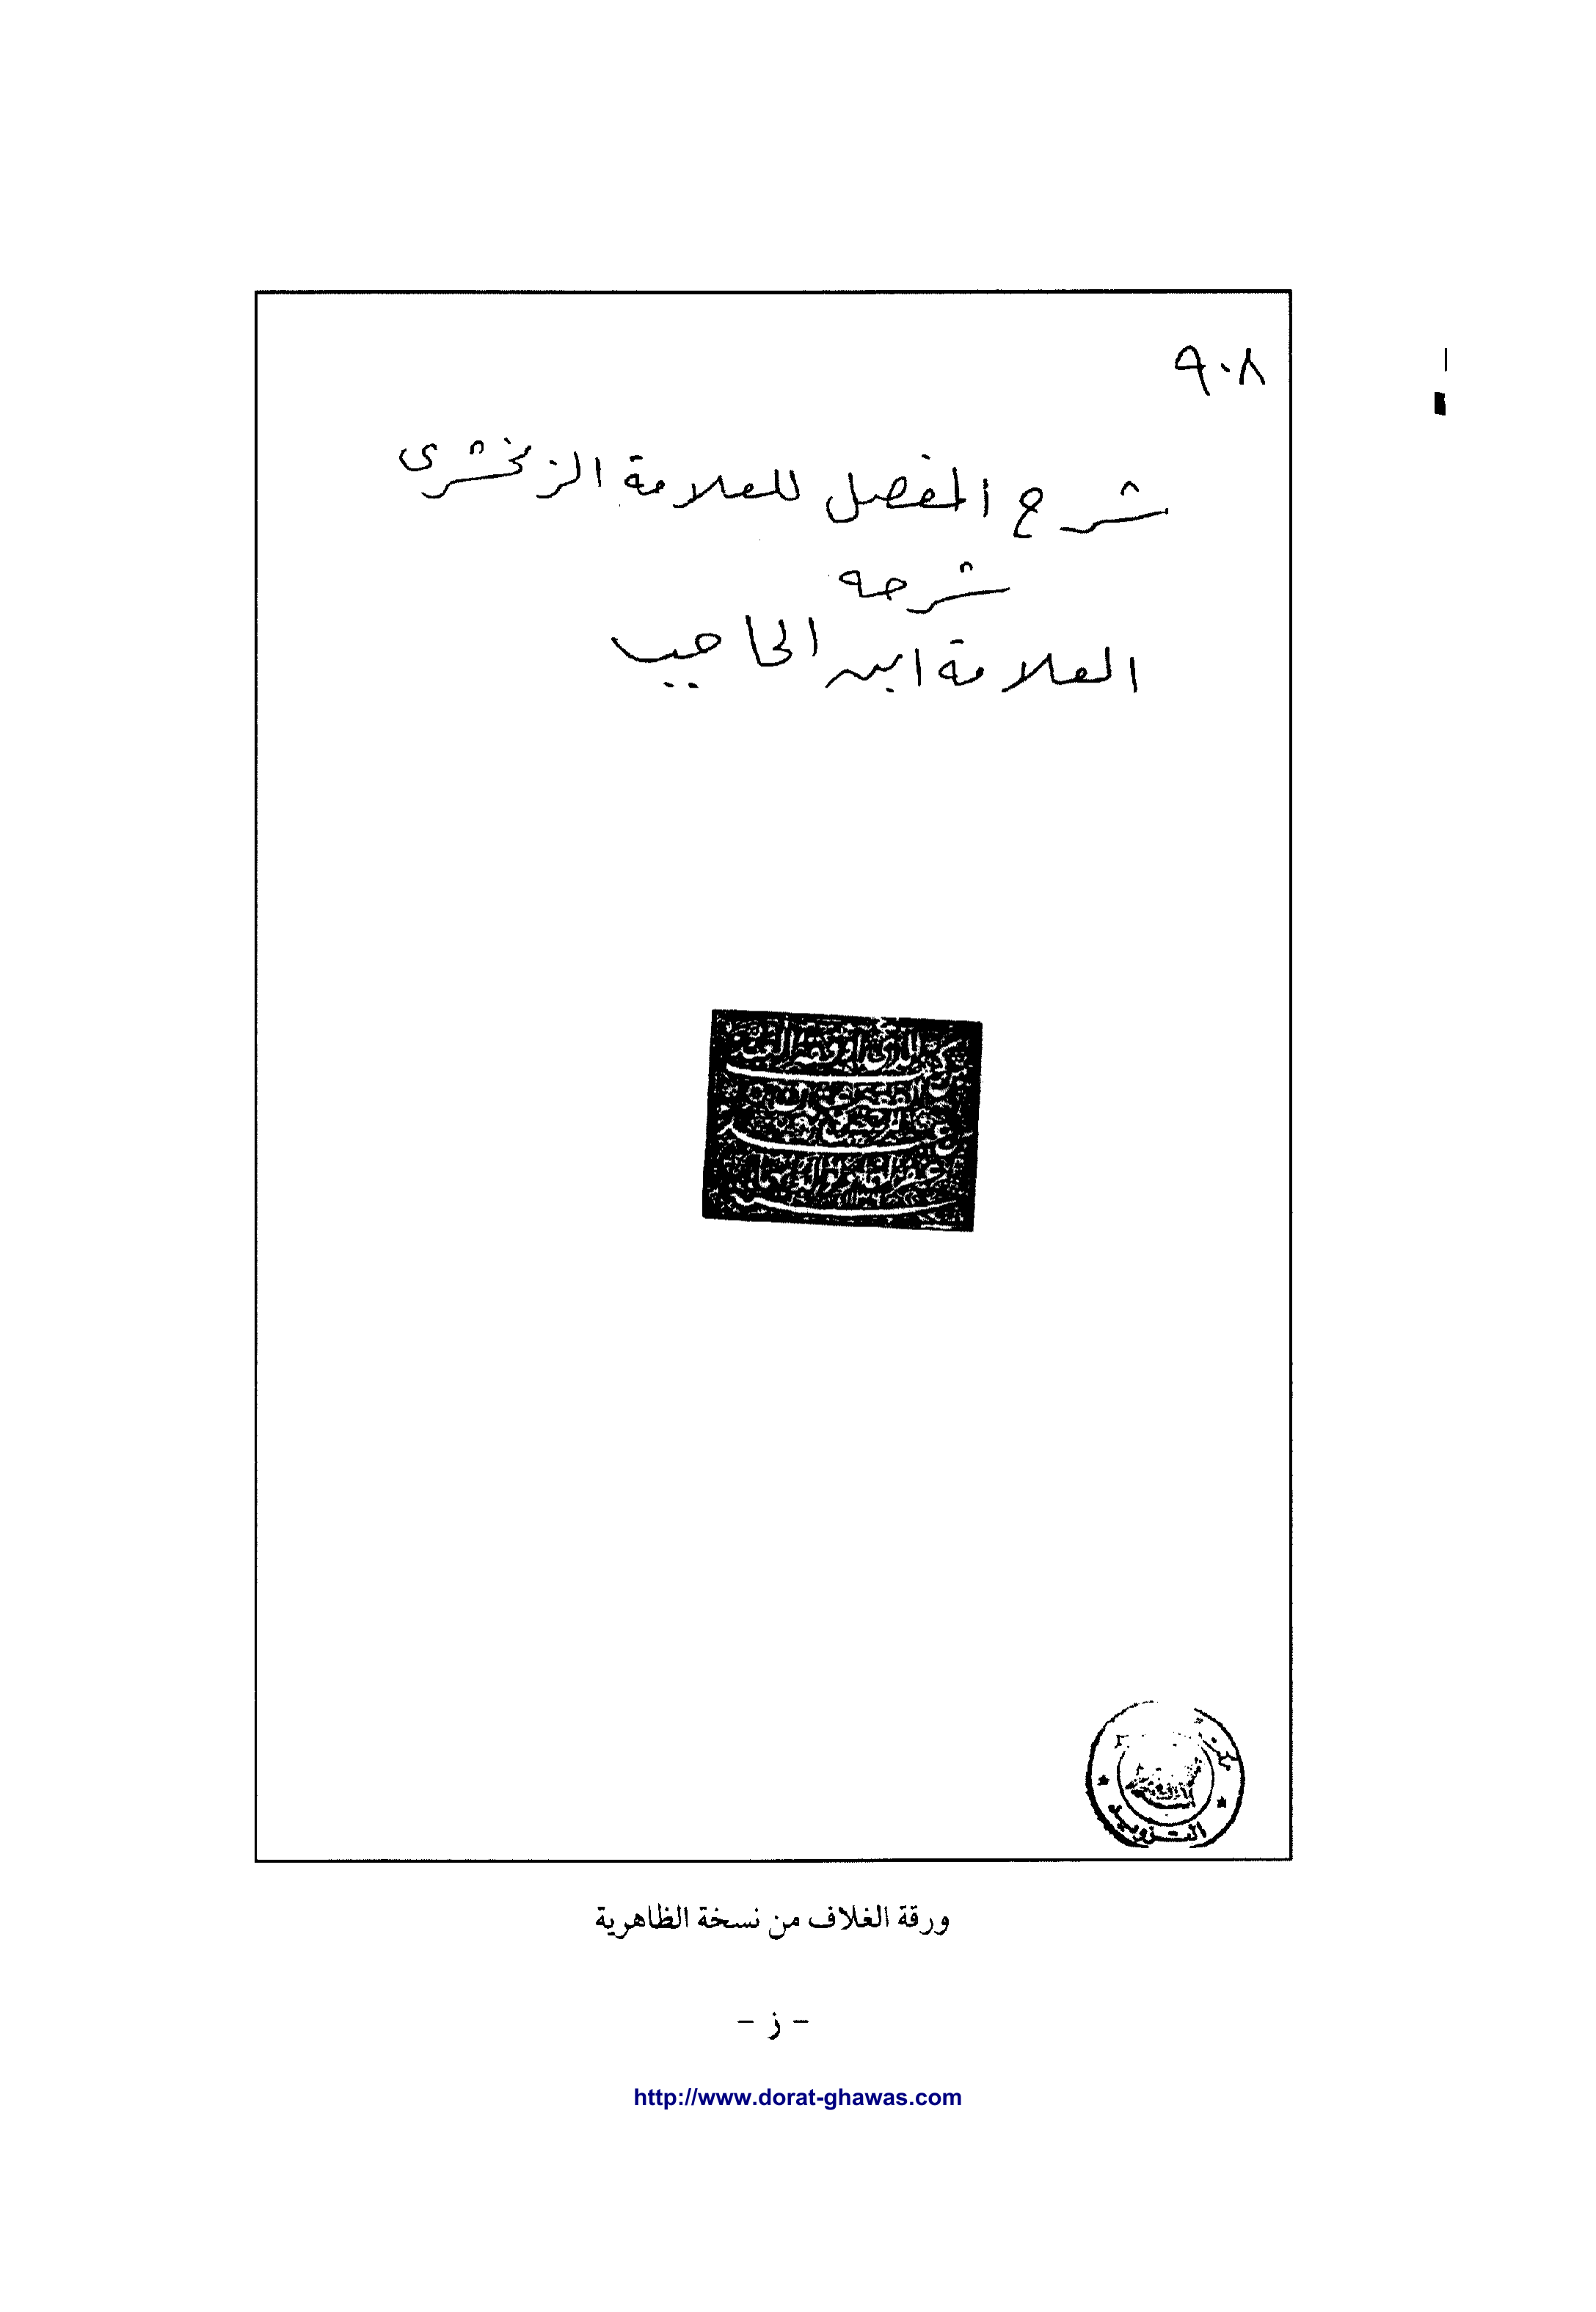 ٩٠٨
شرح المفصل للعلامة الزمخشرى
شرحه
العلامة ابن الحاجب
التزويد
ورقة الغلاف من نسخة الظاهرية
- ز -
http://www.dorat-ghawas.com